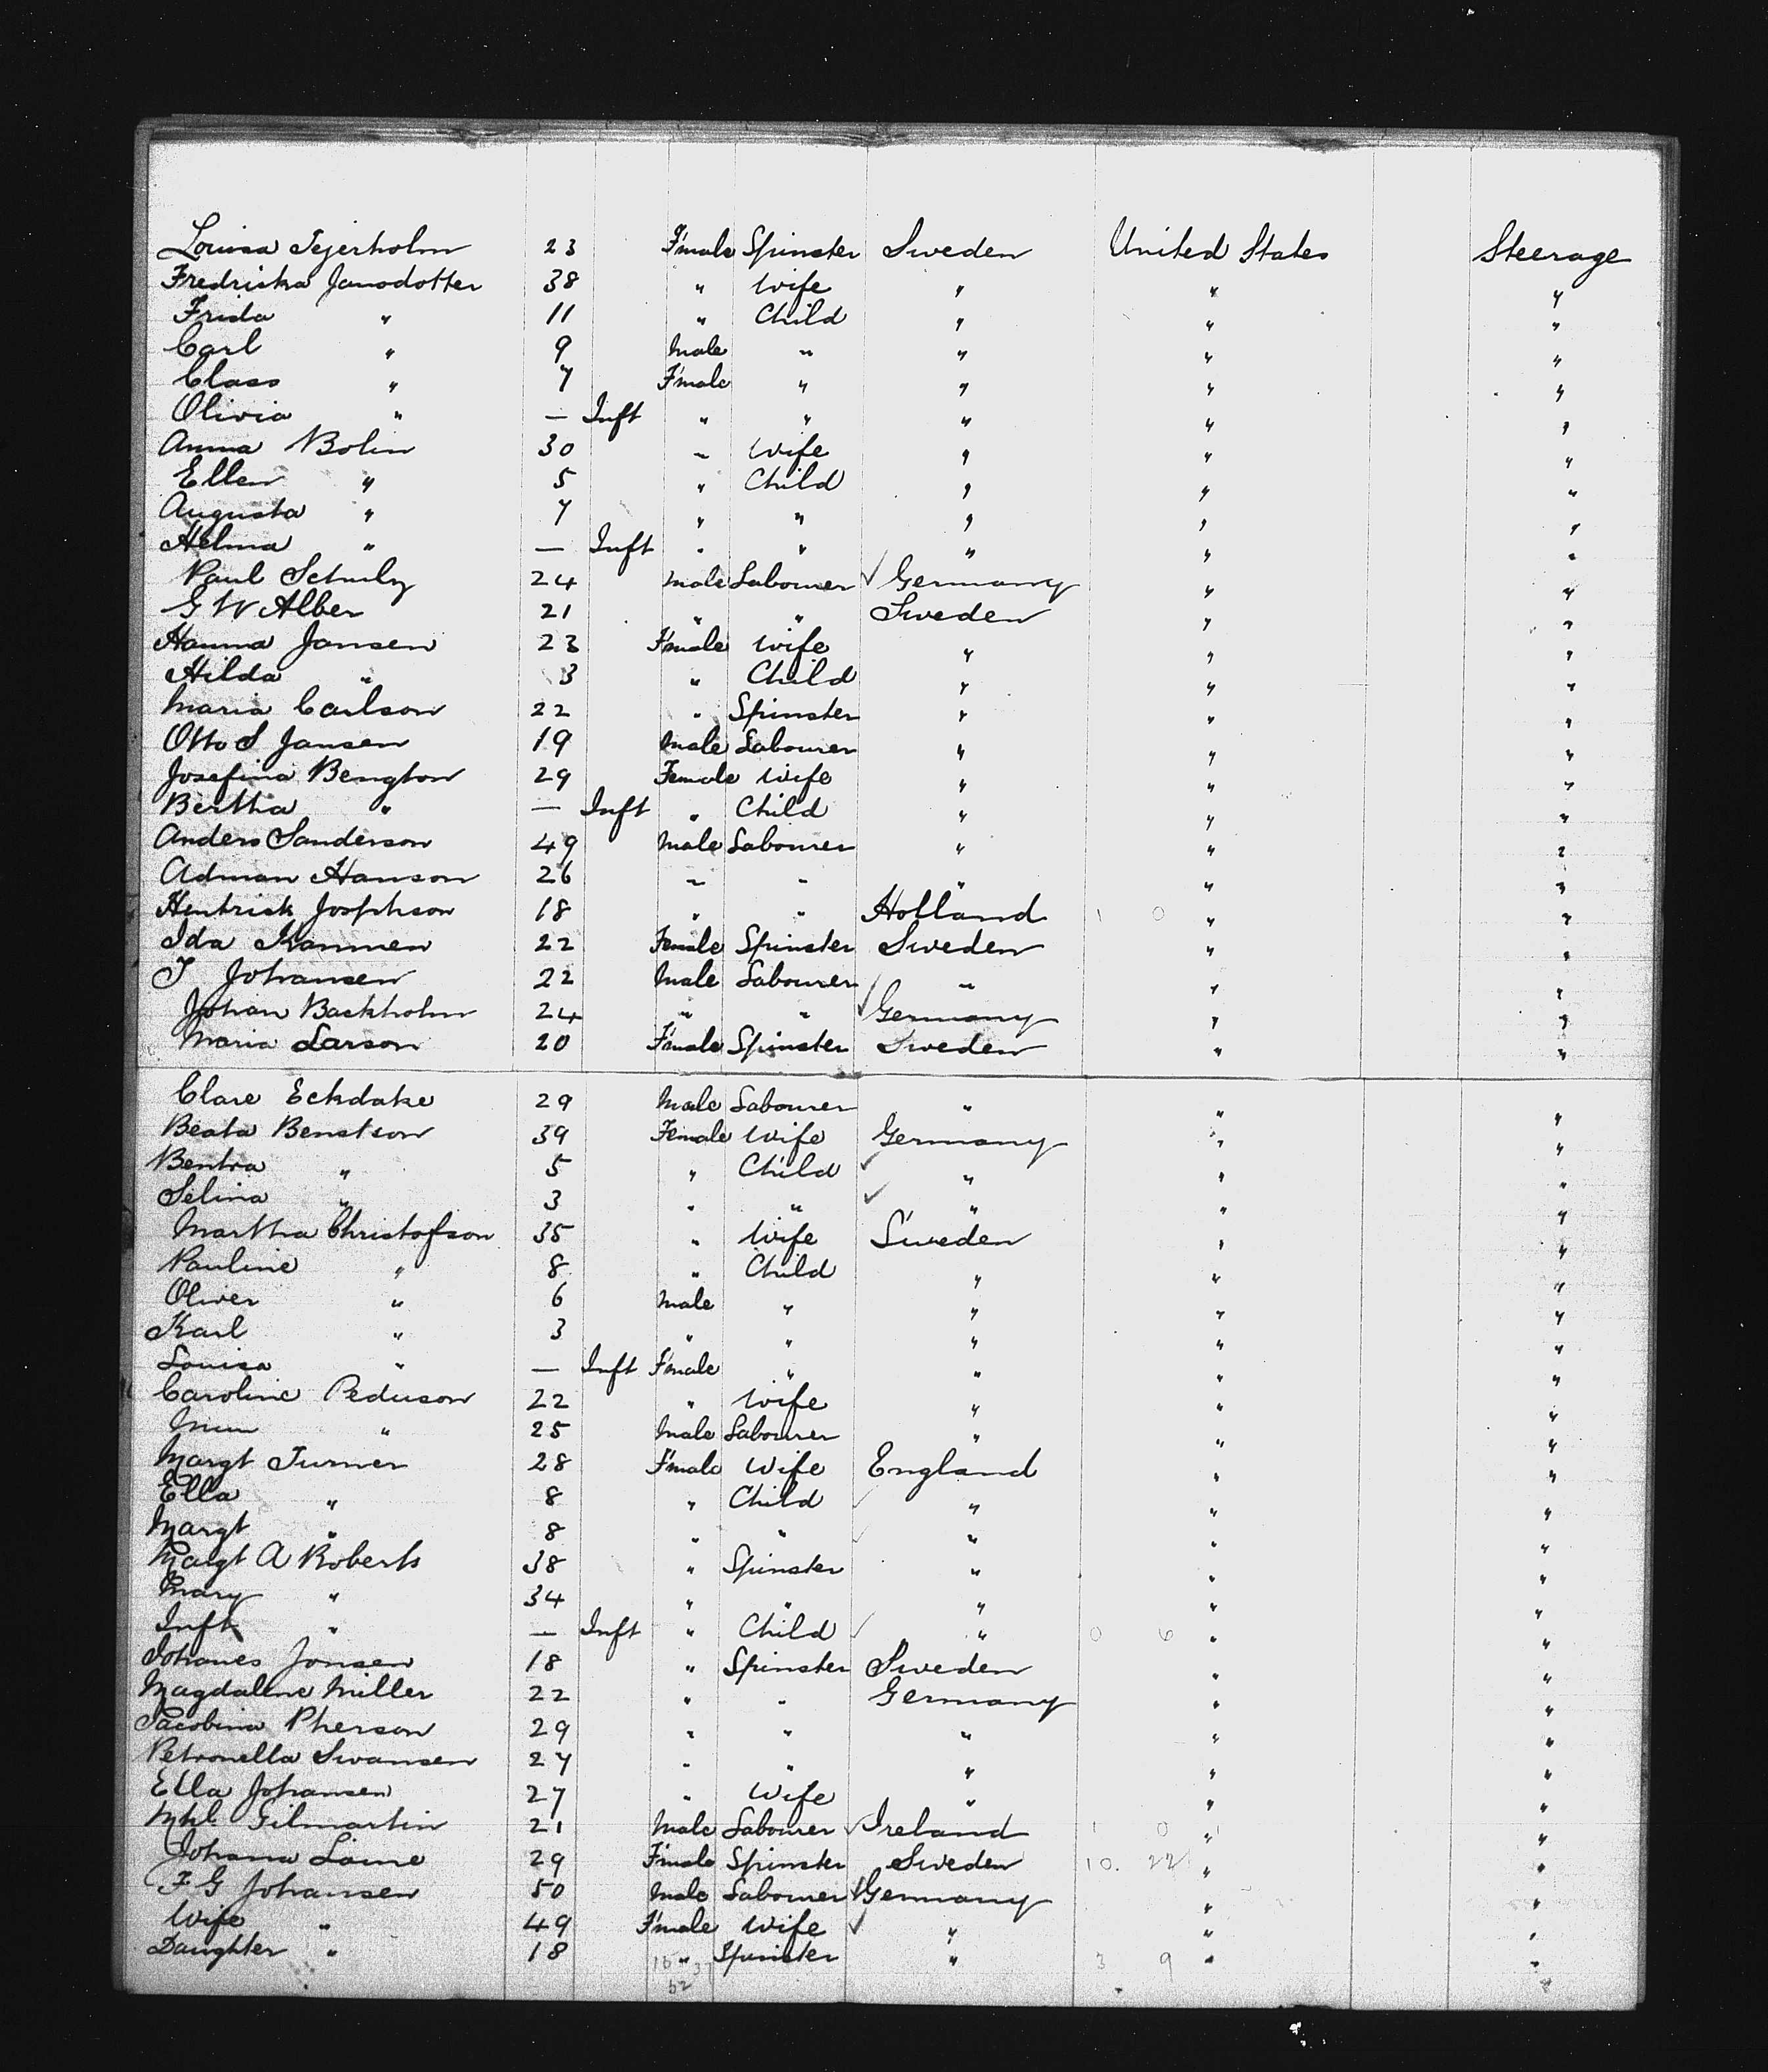 Louisa Tejerholm 23 F'male Spinster Sweden United States Steerage
Fredriska Jansdotter 38 " Wife " " "
Frida " 11 " Child " " "
Carl " 9 Male " " " "
Class " 7 F'male " " " "
Olivia " — Inft " " " " "
Anna Bolin 30 " Wife " " "
Ellen " 5 " Child " " "
Augusta " 7 " " " " "
Helma " — Inft " " " " "
Paul Schulz 24 Male Labourer ✓ Germany " "
G W Alber 21 " " Sweden " "
Hanna Jansen 23 F'male Wife " " "
Hilda " 3 " Child " " "
Maria Carlson 22 " Spinster " " "
Otto S Jansen 19 Male Labourer " " "
Josefina Bengton 29 Female Wife " " "
Bertha " — Inft " Child " " "
Anders Sanderson 49 Male Labourer " " "
Adman Hanson 26 " " " " "
Hentrick Josphson 18 " " Holland 1 0 " "
Ida Kanmen 22 Female Spinster Sweden " "
J Johansen 22 Male Labourer " " "
Johan Backholm 24 " " ✓ Germany " "
Maria Larson 20 F'male Spinster Sweden " "
Clare Eckdake 29 Male Labourer " " "
Beata Benstson 39 Female Wife Germany " "
Bentra " 5 " Child ✓ " " "
Selina " 3 " " ✓ " " "
Martha Christofson 35 " Wife Sweden " "
Pauline " 8 " Child " " "
Oliver " 6 Male " " " "
Karl " 3 " " " " "
Louisa " — Inft F'male " " " "
Caroline Peduson 22 " Wife " " "
" 25 Male Labourer " " "
Margt Turner 28 F'male Wife England " "
Ella " 8 " Child ✓ " " "
Margt " 8 " " ✓ " " "
Margt A Roberts 38 " Spinster " " "
Mary " 34 " " " " "
Inft " — Inft " Child ✓ " 0 6 " "
Johanes Jonsen 18 " Spinster Sweden " "
Magdalene Miller 22 " " Germany " "
Jacobina Pherson 29 " " " " "
Petronella Swansen 27 " " " " "
Ella Johansen 27 " Wife " " "
Mhl Gilmartin 21 Male Labourer ✓ Ireland 1 0 " "
Johana Laine 29 F'male Spinster Sweden 10. 22 " "
F G Johansen 50 Male Labourer ✓ Germany " "
Wife " 49 F'male Wife ✓ " " "
Daughter " 18 " Spinster " 3 9 " "
52